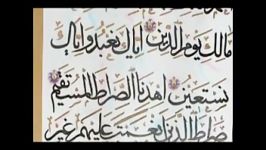 مَالِكِ يَوْمِ الدِّينِ إِيَّاكَ نَعْبُدُ وَإِيَّاكَ
نَسْتَعِينُ اهْدِنَا الصِّرَاطَ الْمُسْتَقِيمَ
صِرَاطَ الَّذِينَ أَنْعَمْتَ عَلَيْهِمْ غَيْرِ